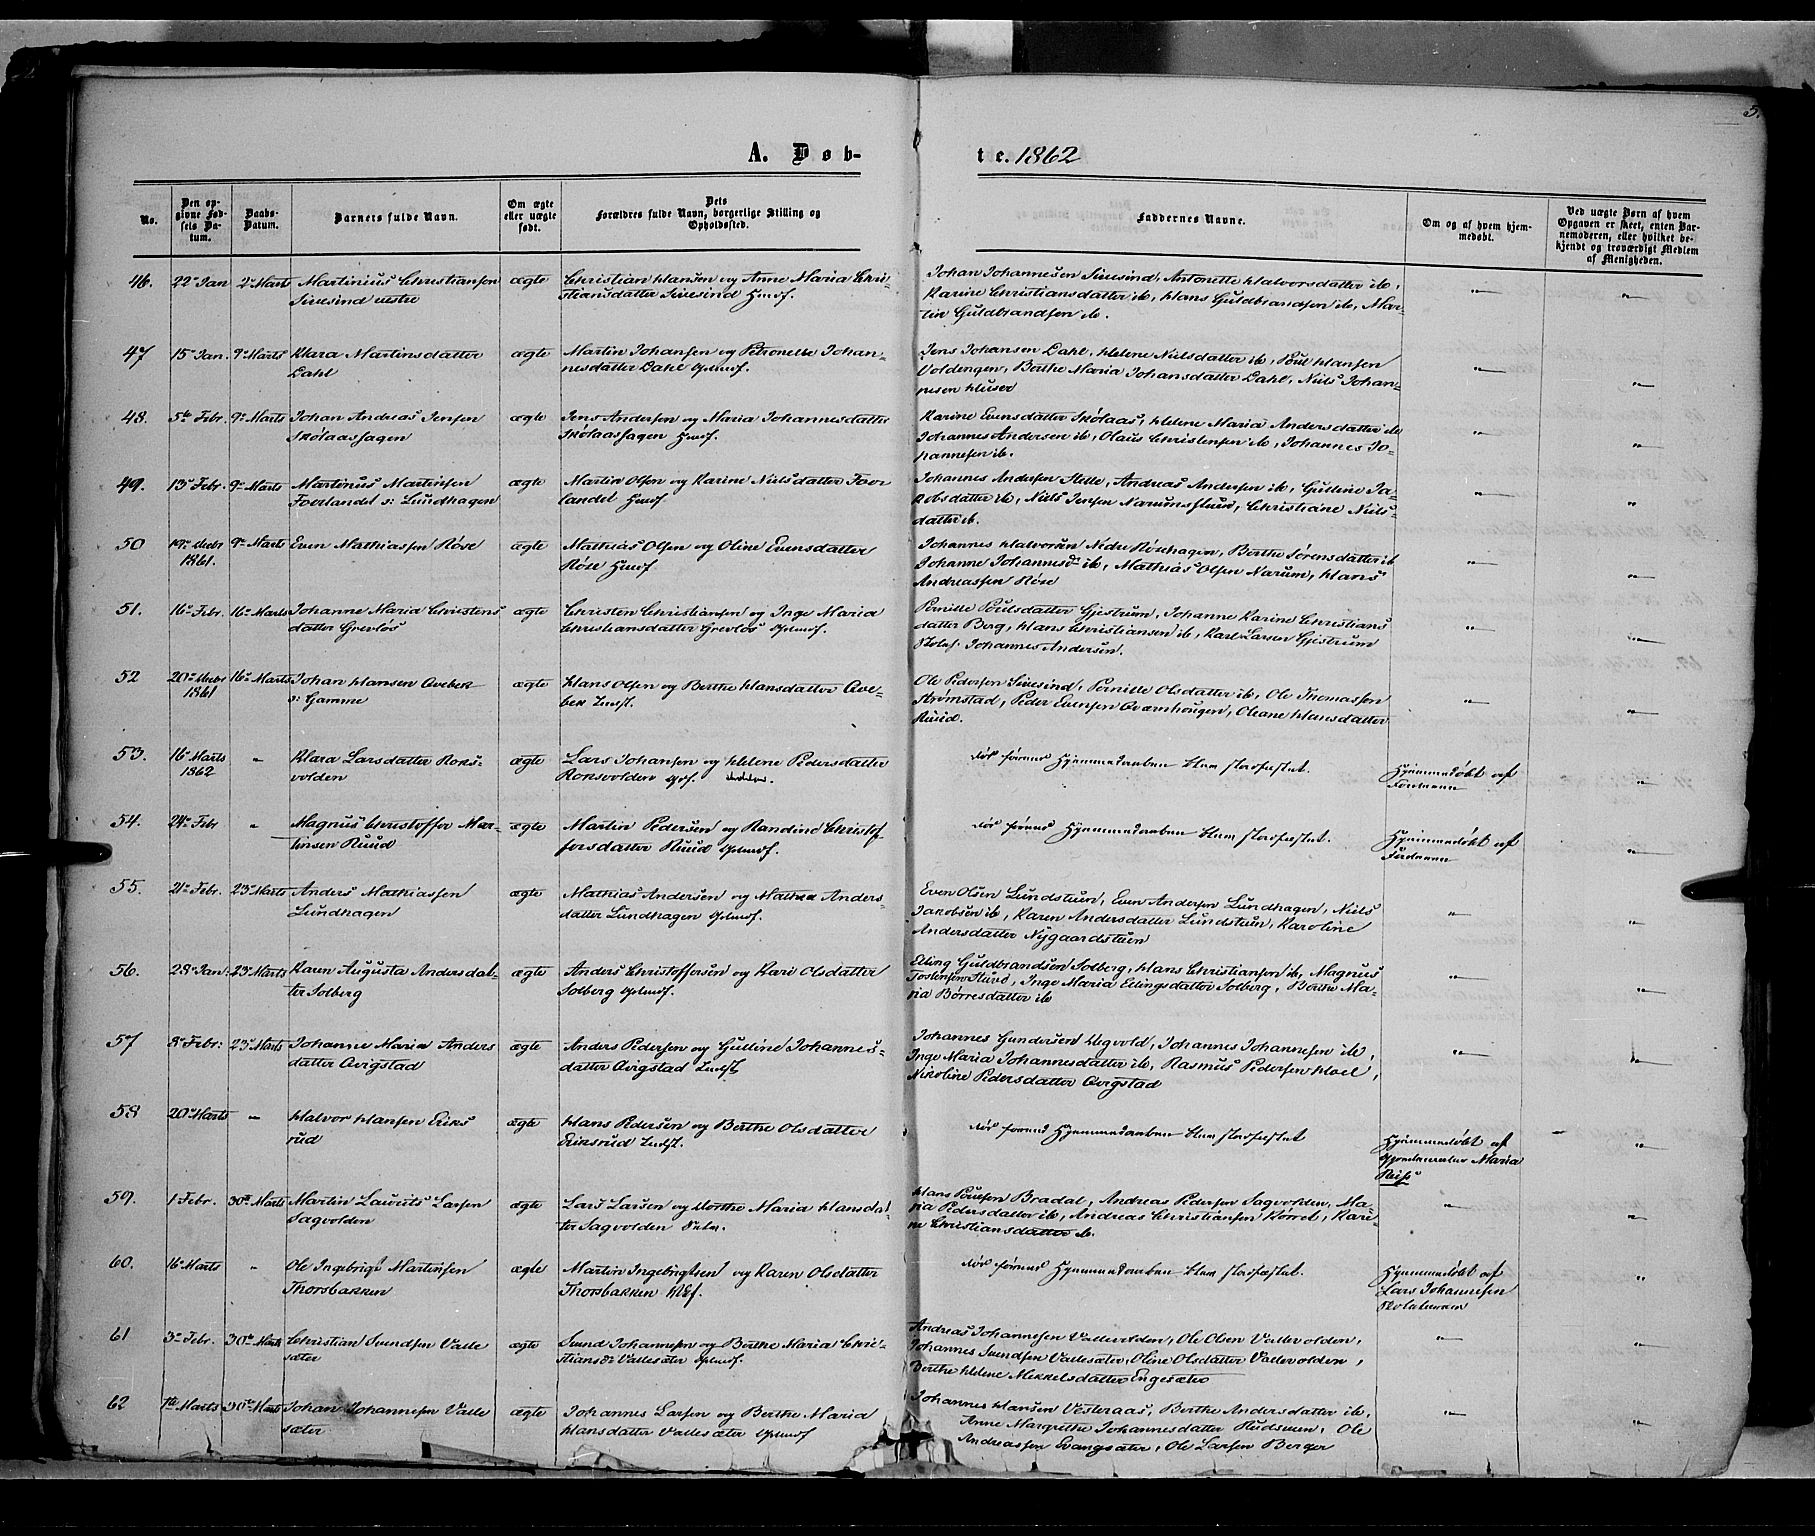 5.
A. Døb-
te. 1862
No.
Den op-
givne Fød-
sels Da-
tum.
Daabs-
Datum.
Barnets fulde Navn.
Om ægte
eller uægte
født.
Dets
Forældres fulde Navn, borgerlige Stilling og
Opholdssted.
Faddernes Navne.
Om og af hvem hjem-
medøbt.
Ved uægte Børn af hvem
Opgaven er skeet, enten Bar-
nemoderen, eller hvilket be-
kjendt og troværdigt Medlem
af Menigheden.
46. 22 Jan 2 Marts Martinius Christiansen
Sivesind vestre
ægte
Christian Hansen og Anne Maria Chri-
stiansdatter Sivesind Huusf.
Johan Johannesen Sivesind, Antonette Halvorsdatter ib,
Karine Christiansdatter ib, Hans Guldbrandsen ib, Mar-
tin Guldbrandsen ib.
47 15 Jan. 9 Marts Klara Martinsdatter
Dahl
ægte
Martin Johansen og Petronelle Johan-
nesdatter Dahl
Jens Johansen Dahl, Helene Nielsdatter ib, Poul Hansen
Voldengen, Berthe Maria Johansdatter Dahl, Niels Johan-
nesen Huser
48. 5te Febr. 9 Marts Johan Andreas Jensen
Skölaashagen
ægte
Jens Andersen og Maria Johannesdatter
Skölaashagen Huusf.
Karine Evensdatter Skölaas, Helene Maria Andersdatter ib
Johannes Andersen ib, Olaus Christensen ib, Johannes Jo-
hannesen ib.
49. 13 Febr. 9 Marts Martinus Martinsen
Foerlandet v: Lundhagen
ægte
Martin Olsen og Karine Nielsdatter Foer
landet Huusf.
Johannes Andersen Stelle, Andreas Andersen ib, Gulline Ja-
kobsdatter ib, Niels Jensen Narumsstuen, Christiane Niels-
datter ib.
50 19 Decbr 9 Marts Even Mathiassen Röse
1861.
ægte
Mathias Olsen og Oline Evensdatter
Röse Huusf
Johannes Halvorsen Nedre Rösehagen, Berthe Sörensdatter ib
Johanne Johannesdr ib, Mathias Olsen Narum, Hans
Andreassen Röse
51. 16 Febr. 16 Marts Johanne Maria Christens
datter Grevlös
ægte
Christen Christiansen og Inge Maria
Christiansdatter Grevlös
Pernille Poulsdatter Gjestrum, Johanne Karine Christians
datter Berg, Hans Christiansen ib, Karl Larsen Gjestrum
Johannes Andersen.
52 20 Decbr 16 Marts Johan Hansen Avebek
1861
v: Gamme
ægte
Hans Olsen og Berthe Hansdatter Ave-
bek Indst.
Ole Pedersen Sivesind, Pernille Olsdatter ib, Ole Thomassen
Strømstad, Peder Evensen Qværnhougen, Oleane Hansdatter
Ruud.
53. 16 Marts Klara Larsdatter Roks-
1862
volden
ægte
Lars Johansen og Helene Pedersdatter
Roksvolden
död förend Hjemmedaaben blev stadfæstet.
Hjemmedøbt af
Fordmann
54. 24 Febr Magnus Christoffer Mar-
tinsen Ruud
ægte
Martin Pedersen og Randine Christof
fersdatter Ruud
död förend Hjemmedaaben blev stadfæstet.
Hjemmedøbt af
55. 21 Febr. 23 Marts Anders Mathiassen
Lundhagen
ægte
Mathias Andersen og Mathea Anders-
datter Lundhagen
Even Olsen Lundstuen, Even Andersen Lundhagen, Niels
Jakobsen ib, Karen Andersdatter Lundstuen, Karoline
Andersdatter Nygaardstuen
56. 28 Jan: 23 Marts Karen Augusta Andersdat-
ter Solberg
ægte
Anders Christoffersen og Kari Olsdatter
Solberg
Elling Guldbrandsen Solberg, Hans Christiansen ib, Magnus
Tostensen, Inge Maria Ellingsdatter Solberg, Berthe Ma-
ria Börresdatter ib
57 8 Febr: 23 Marts Johanne Maria Anders
datter Qvigstad
ægte
Anders Pedersen og Gulline Johannes-
datter Qvigstad Indst
Johannes Gundersen Hegvold, Johannes Johannesen ib,
Inge Maria Johannesdatter ib, Rasmus Pedersen Hoel,
Nikoline Pedersdatter Qvigstad
58 20 Marts Halvor Hansen Eriks
rud
ægte
Hans Pedersen og Berthe Olsdatter
Eriksrud Indst.
död förend Hjemmedaaben blev stadfæstet
Hjemmedøbt af
Maria
59. 1 Febr. 30te Marts Martin Laurits Larsen
Sagvolden
ægte
Lars Larsen og Dorthe Maria Hansdat
ter Sagvolden
Hans Poulsen Bradal, Andreas Pedersen Sagvolden, Ma-
ria Pedersdatter ib, Andreas Christiansen Körret, Kari-
ne Christiansdatter ib.
60. 16 Marts Ole Ingebrigt Martinsen
Thorsbakken
ægte
Martin Ingebrigtsen og Karen Olsdatter
Thorsbakken
död förend Hjemmedaaben blev stadfæstet.
Hjemmedøbt af
Lars Johannesen
61 3 Febr. 30te Marts Christian Svendsen Valle
sæter
ægte
Svend Johannesen og Berthe Maria Chri-
stiansdr Vallesæter
Andreas Johannesen Vallevolden, Ole Olsen Vallevolden,
Johannes Svendsen Vallesæter, Oline Olsdatter Vallevolden,
Berthe Helene Mikkelsdatter Engesæter
62 1te Marts 30te Marts Johan Johannesen Valle
sæter
ægte
Johannes Larsen og Berthe Maria
Hansdatter Vallesæter
Johannes Hansen Vesteraas, Berthe Andersdatter ib,
Anne Margrethe Johannesdatter Hudsveen, Ole
Andreassen Evangsæter, Ole Larsen Berger